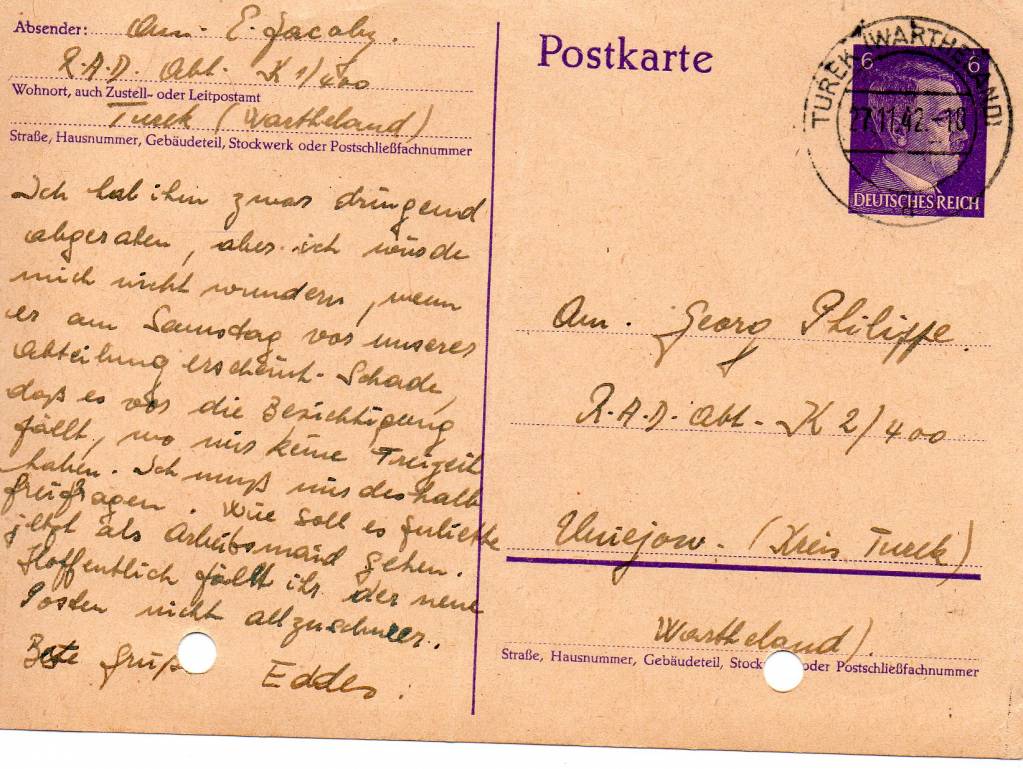 Absender: Am. E. Jacoby.
R.A.D. Abt. K 1/400
Wohnort, auch Zustell- oder Leitpostamt
Turek (Wartheland)
Straße, Hausnummer, Gebäudeteil, Stockwerk oder Postschließfachnummer
Ich hab ihm zwar dringend
abgeraten, aber ich würde
mich nicht wundern, wenn
er am Samstag vor unserer
Abteilung erscheint. Schade,
daß es vor die Besichtigung
fällt, wo wir keine Freizeit
haben. Ich muß mir deshalb
freifragen. Wie soll es Juliette
jetzt als Arbeitsmaid gehen.
Hoffentlich fällt ihr der neue
Posten nicht allzuschwer.
Beste Grüße
Eddy.
Postkarte
TUREK (WARTHELAND)
27.11.42.-18
6 6
DEUTSCHES REICH
Am. Georg Philippe.
R.A.D. Abt. K 2/400
Uniejow. (Kreis Turek)
Wartheland)
Straße, Hausnummer, Gebäudeteil, Stock oder Postschließfachnummer